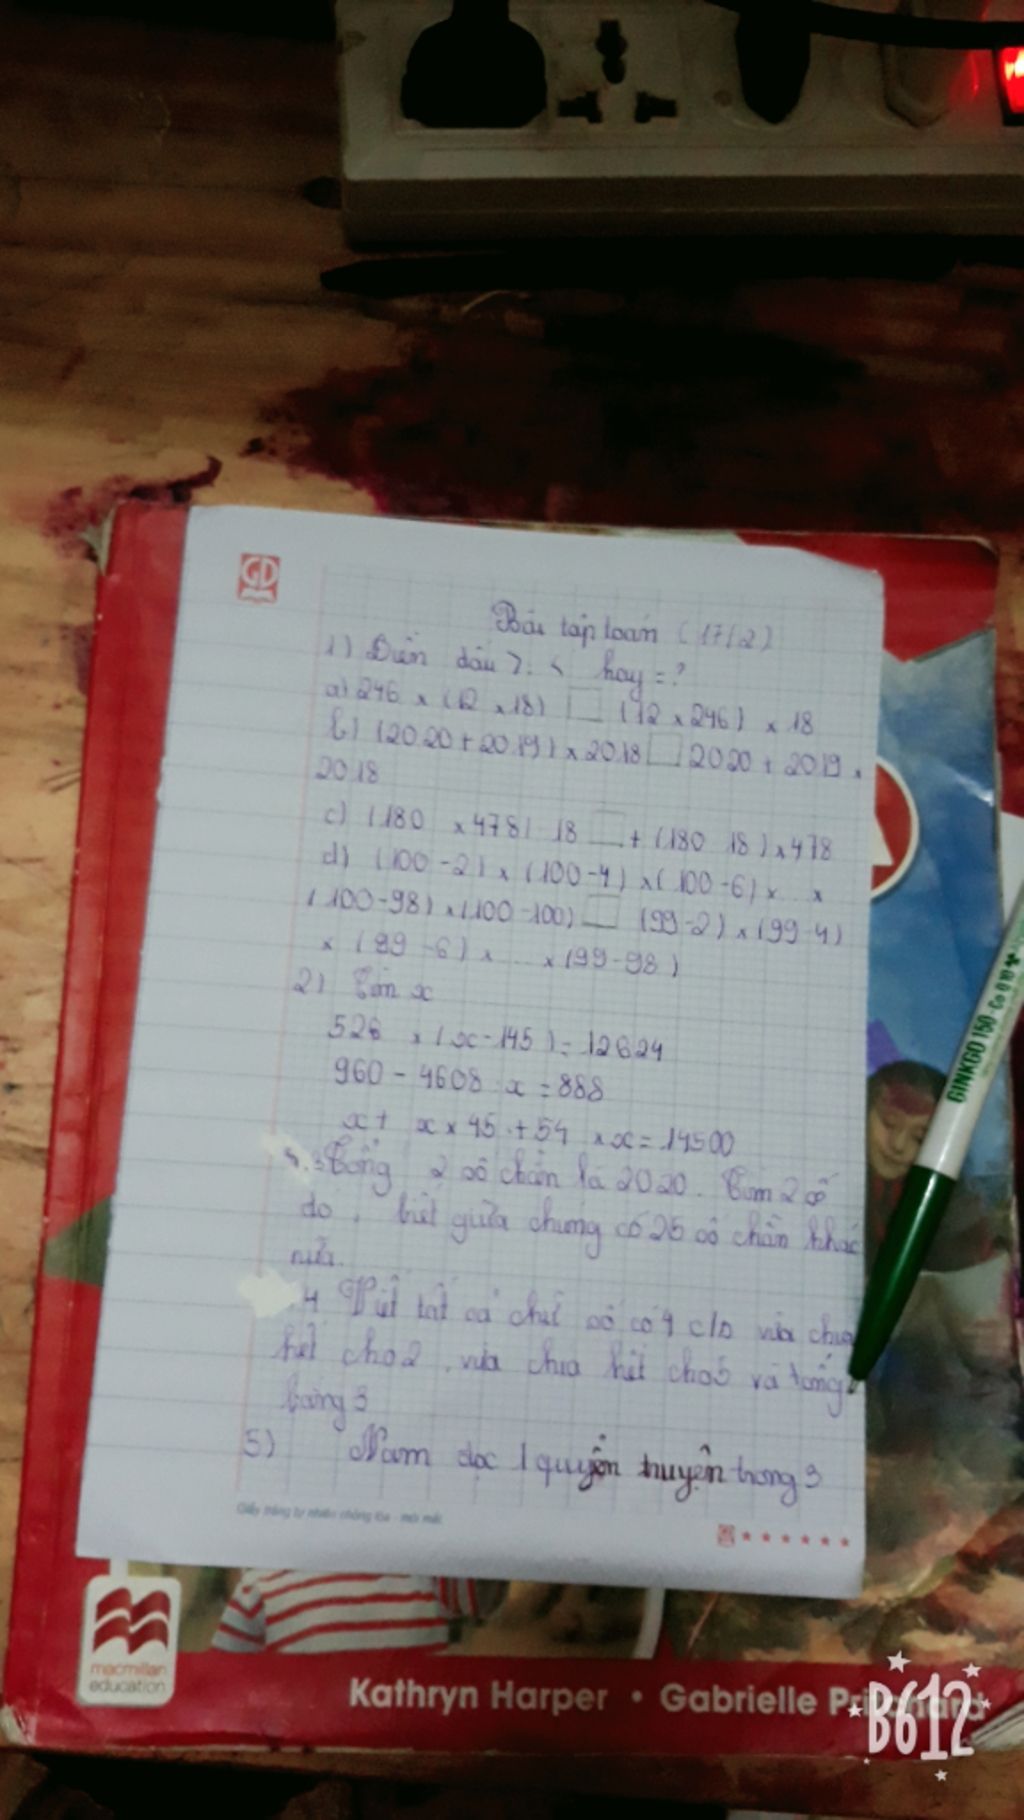 GD
Bài tập toán (17/2)
1) Điền dấu >, < hay = ?
a) 246 x (12 x 18) □ (12 x 246) x 18
b) (2020 + 2019) x 2018 □ 2020 + 2019 x
2018
c) (180 x 478) 18 □ + (180 18) x 478
d) (100 - 2) x (100 - 4) x (100 - 6) x ... x
(100 - 98) x (100 - 100) □ (99 - 2) x (99 - 4)
x (99 - 6) x ... x (99 - 98)
2) Tìm x
526 x (x - 145) = 12624
960 - 4608 x = 888
x + x x 45 + 54 x x = 14500
3 Tổng 2 số chẵn là 2020. Tìm 2 số
đó, biết giữa chúng có 25 số chẵn khác
nữa.
4 Viết tất cả chữ số có 4 c/s vừa chia
hết cho 2, vừa chia hết cho 5 và tổng
bằng 3
5) Nam đọc 1 quyển truyện trong 3
Giấy trắng tự nhiên chống lóa - mỏi mắt
GINKGO 150
macmillan
education
Kathryn Harper • Gabrielle Pritchard
B612